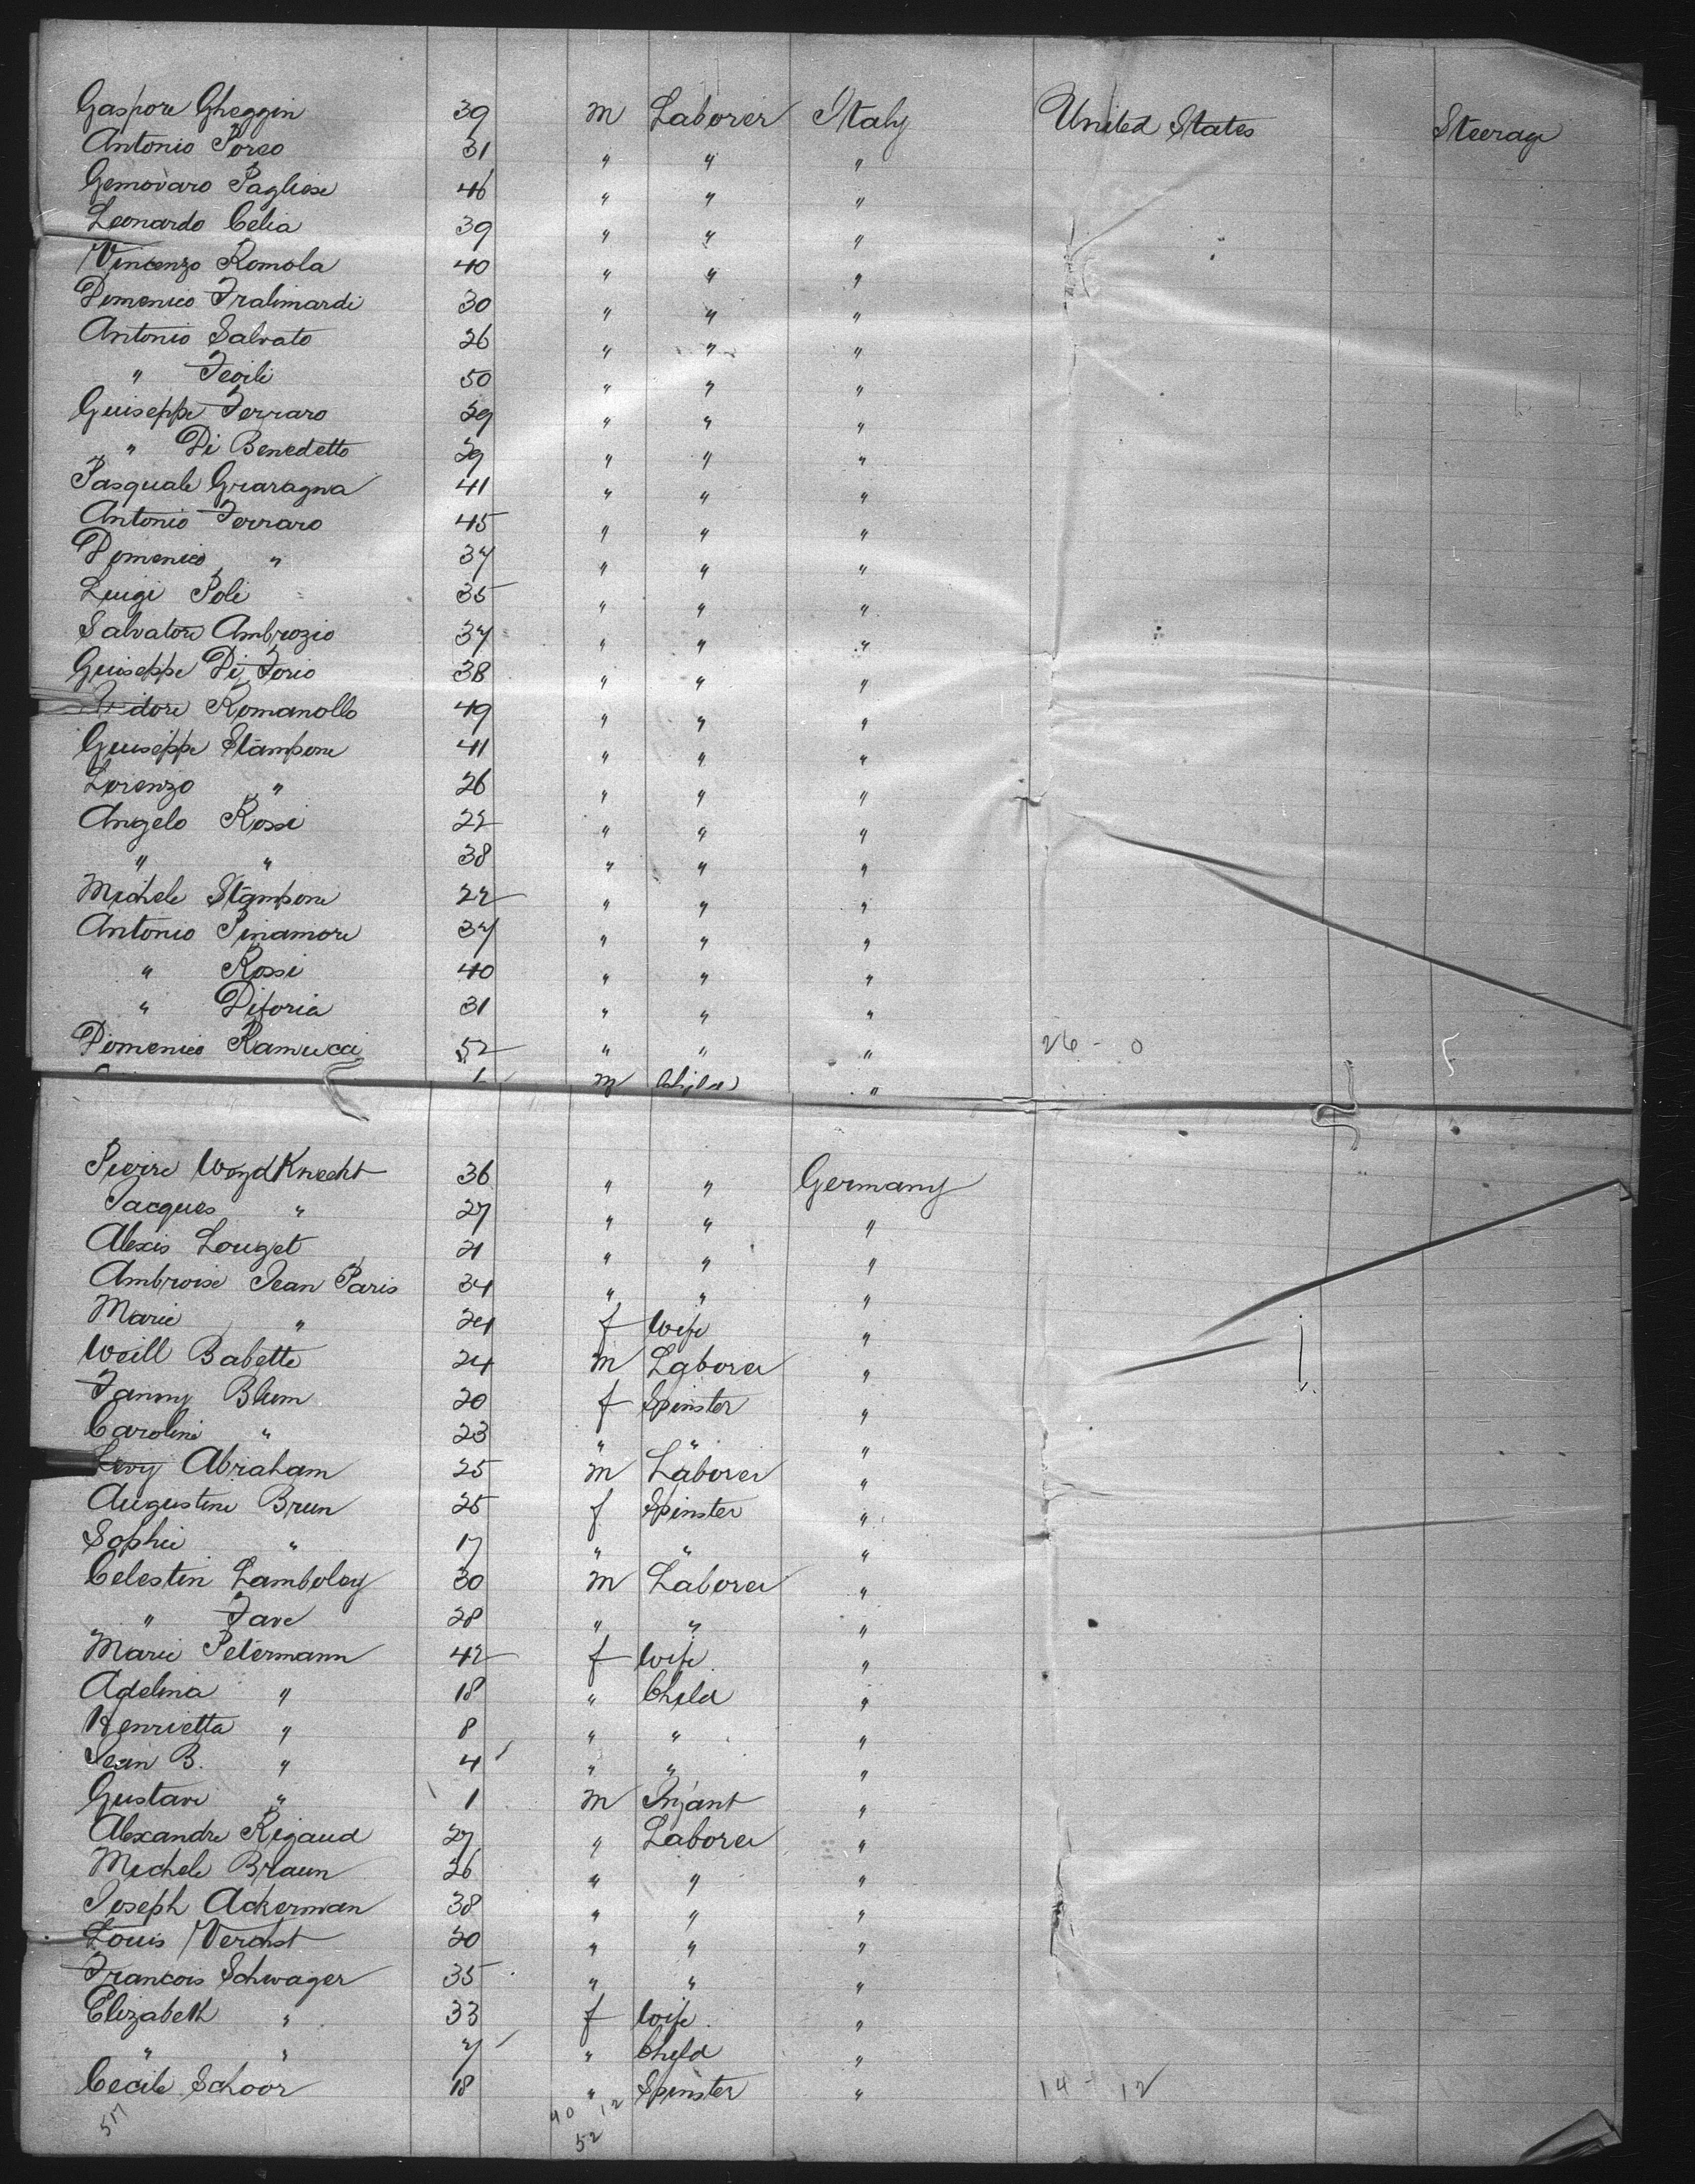 Gaspore Gheggin 39 m Laborer Italy United States Steerage
Antonio Porco 31 " " "
Gemovaro Pagliese 46 " " "
Leonardo Celia 39 " " "
Vincenzo Romola 40 " " "
Domenico Fralimardi 30 " " "
Antonio Salvato 26 " " "
" 50 " " "
Guiseppe Ferraro 29 " " "
" Di Benedetto 29 " " "
Pasquale Graragna 41 " " "
Antonio Ferraro 45 " " "
Domenico " 37 " " "
Luigi Poli 35 " " "
Salvatore Ambrozio 37 " " "
Guiseppe Di Iorio 38 " " "
Romanollo 49 " " "
Guiseppe Stampone 41 " " "
Lorenzo " 26 " " "
Angelo Rossi 22 " " "
" " 38 " " "
Michele Stampone 22 " " "
Antonio Pinamore 37 " " "
" Rossi 40 " " "
" Diforia 31 " " "
Domenico Ramucci 52 " " " 26 - 0
m Child "
Pierre WeydKnecht 36 " " Germany
Jacques " 27 " " "
Alexis Louzet 21 " " "
Ambroise Jean Paris 34 " " "
Marie " 24 f Wife "
Weill Babette 24 m Laborer "
Fanny Blum 20 f Spinster "
Caroline " 23 " " "
Levy Abraham 25 m Laborer "
Augustine Brun 25 f Spinster "
Sophie " 17 " " "
Celestin Lamboley 30 m Laborer "
" Fave 28 " " "
Marie Petermann 42 f Wife "
Adelina " 18 " Child "
Henrietta " 8 " " "
Jean B. " 4 " " "
Gustave " 1 m Infant "
Alexandre Rigaud 27 " Laborer "
Michele Braun 26 " " "
Joseph Ackerman 38 " " "
Louis Verdist 20 " " "
Francois Schwager 35 " " "
Elizabeth " 33 f Wife "
" " 7 " Child "
Cecile Schoor 18 " Spinster " 14 - 12
517 40 12
52